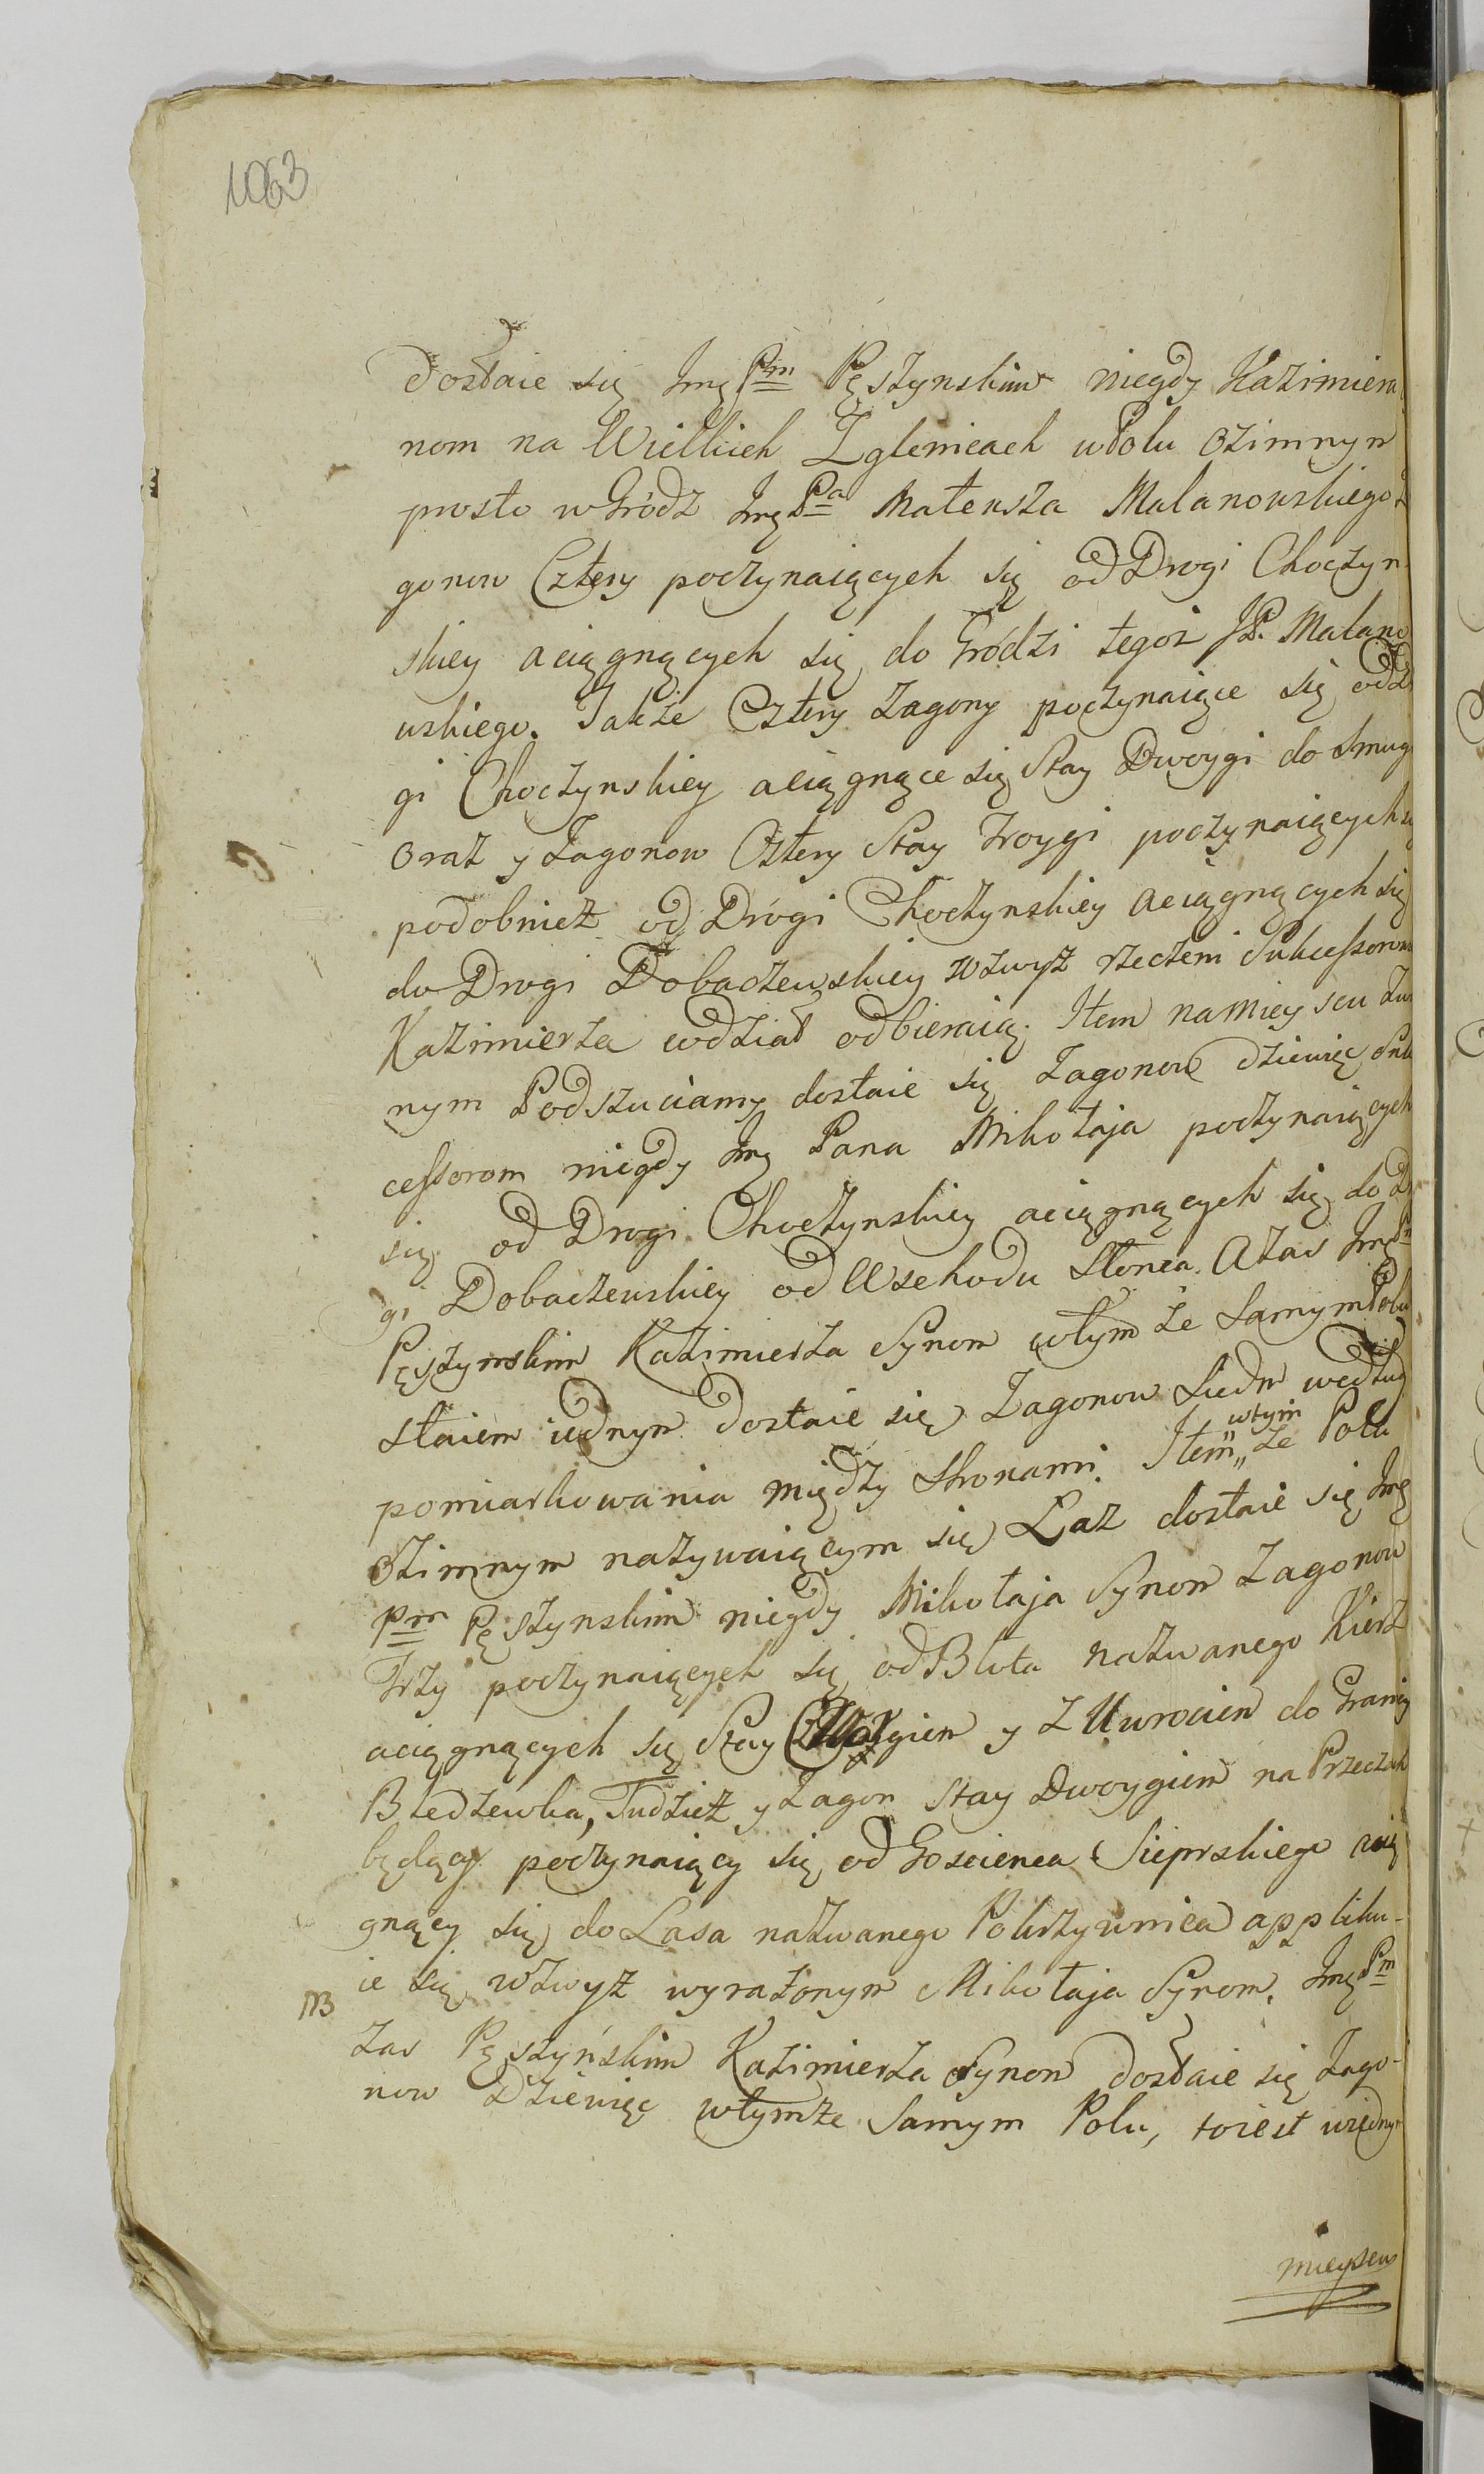 1063
dostaie się Jmę Pm Pęszynskim niegdy Kazimierz
nom na Wielkich Zglenicach w Polu Ozimnym
prosto w Gródz Jmę Pa Mateusza Malanowskiego
gonow Cztery poczynaiących się od Drogi Choczyn
skiey a ciągnących się do Gródzi tegoż JP. Malano
wskiego. Także Cztery zagony poczynaiące się od
gi Choczynskiey a ciągnące się Stay Dwoygi do Smug
oraz y Zagonow Cztery Stay Troygi poczynaiących
podobnież od Drógi Choczynskiey a ciągnących się
do Drogi Dobaczewskiey wzwyż rzeczeni Sukcessorow
Kazimierza w dział odbieraią. Item na mieyscu
nym Podszuciamy dostaie się Zagonow dziewięć Suk
cessorom niegdy Jmę Pana Mikołaja poczynaiących
się od Drogi Choczynskiey a ciągnących się do
gi Dobaczewskiey od Wschodu Słonca. A zas Jmę
Pęszynskim Kazimierza Synom w tym że Samym Polu
staiem iednym dostaie się Zagonow Siedm według
pomiarkowania między Stronami. Item „wtym„ że Polu
Ozimnym nazywaiącym się Laz dostaie się Jmę
Pm Pęszynskim niegdy Mikołaja Synom Zagonow
Trzy poczynaiących się od Błota nazwanego Kierz
a ciągnących się Stay y Z Uwrociem do Granicy
Bledzewka, Tudzież y Zagon Stay Dwoygiem na
będący poczynaiący się od Goscienca Sieprskiego a cią
gnący się do Lasa nazwanego Pokrzywnica applikuie-
ie się wzwyż wyrażonym Mikołaja Synom. Jmę Pm
NB
zas Pęszyńskim Kazimierza Synom dostaie się Zago-
now Dziewięć w tymże Samym Polu, to iest w iednym
mieyscu